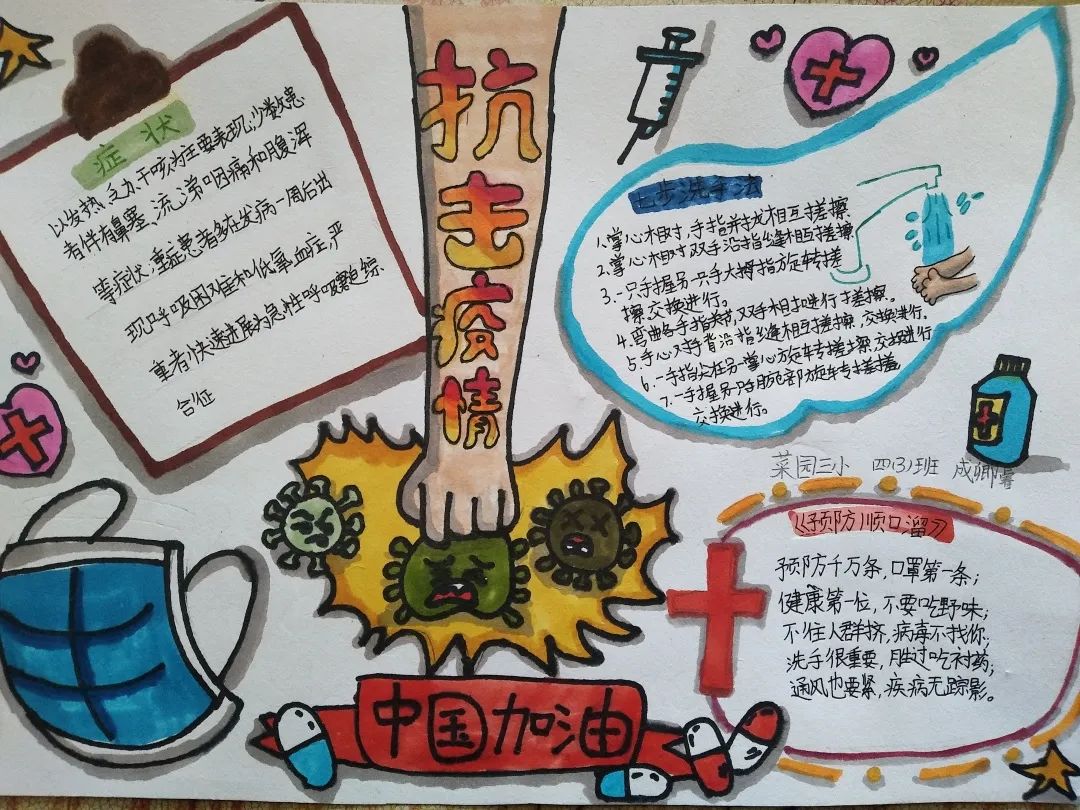 抗击疫情
症状
以发热、乏力、干咳为主要表现,少数患
者伴有鼻塞、流涕、咽痛和腹泻
等症状;重症患者多在发病一周后出
现呼吸困难和低氧血症,严
重者快速进展为急性呼吸窘迫综
合征
七步洗手法
1.掌心相对,手指并拢相互搓擦
2.掌心相对双手沿指缝相互搓擦
3.一只手握另一只手大拇指旋转搓
擦,交换进行。
4.弯曲各手指关节,双手相扣进行搓擦。
5.手心对手背沿指缝相互搓擦,交换进行。
6.一手指尖在另一掌心旋转搓擦,交换进行
7.一手握另一只手腕部旋转搓擦
交换进行。
菜园三小 四(3)班 成卿
《预防顺口溜》
预防千万条,口罩第一条;
健康第一位,不要吃野味;
不往人群挤,病毒不找你;
洗手很重要,胜过吃补药;
通风也要紧,疾病无踪影。
中国加油